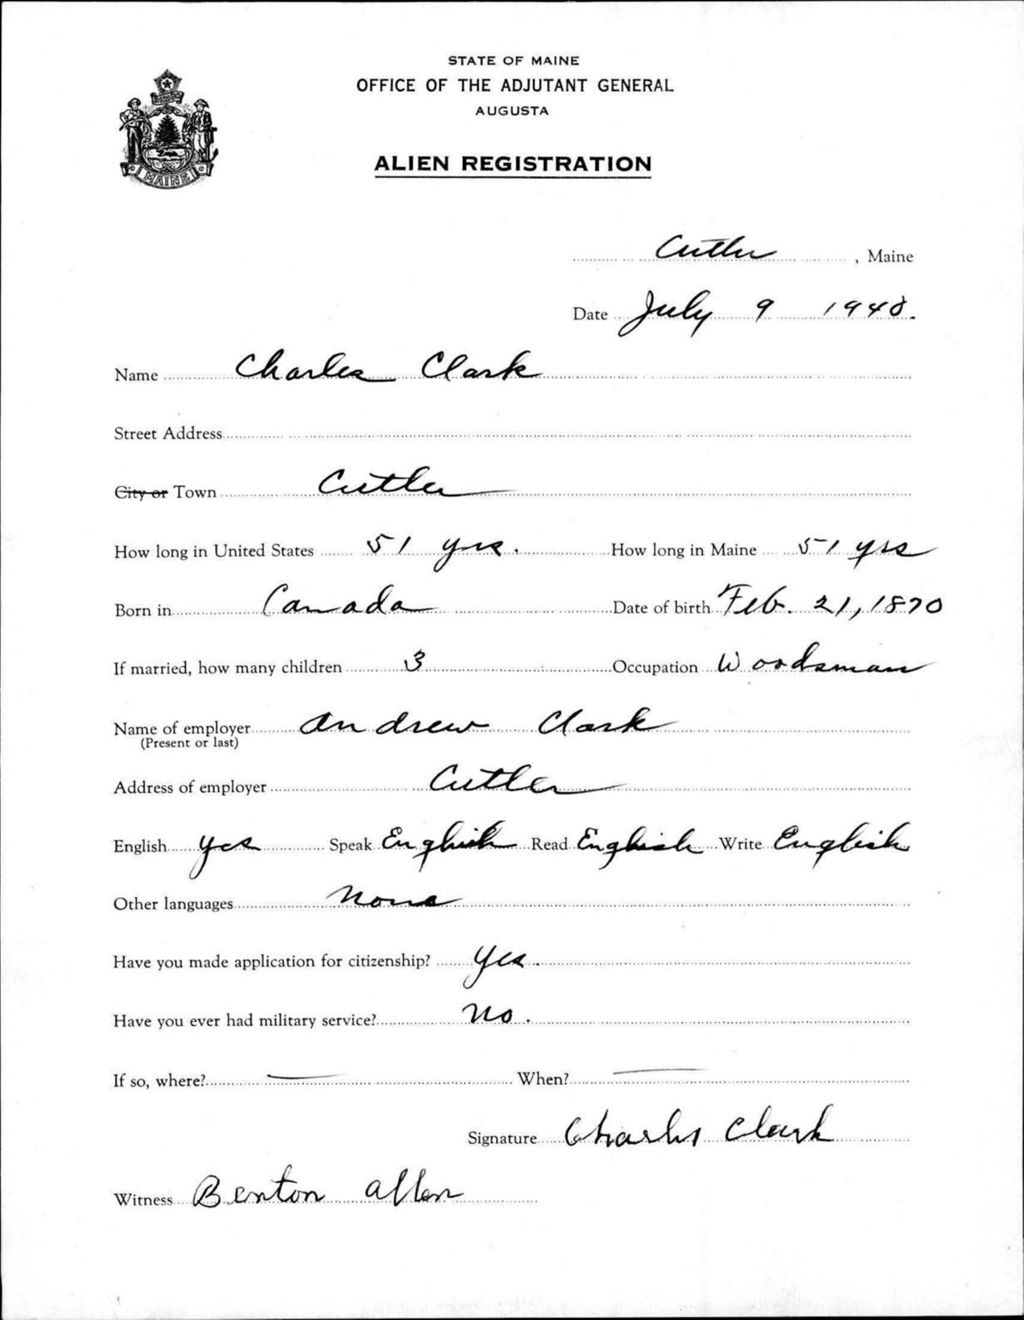 STATE OF MAINE
OFFICE OF THE ADJUTANT GENERAL
AUGUSTA
ALIEN REGISTRATION
MAINE
Cutler, Maine
Date July 9 1940.
Name Charles Clark
Street Address
City or Town Cutler
How long in United States 51 yrs. How long in Maine 51 yrs
Born in Canada Date of birth Feb. 21, 1870
If married, how many children 3 Occupation Woodsman
Name of employer Andrew Clark
(Present or last)
Address of employer Cutler
English Yes Speak English Read English Write English
Other languages None
Have you made application for citizenship? Yes.
Have you ever had military service? No.
If so, where? — When? —
Signature Charles Clark
Witness Benton Allen